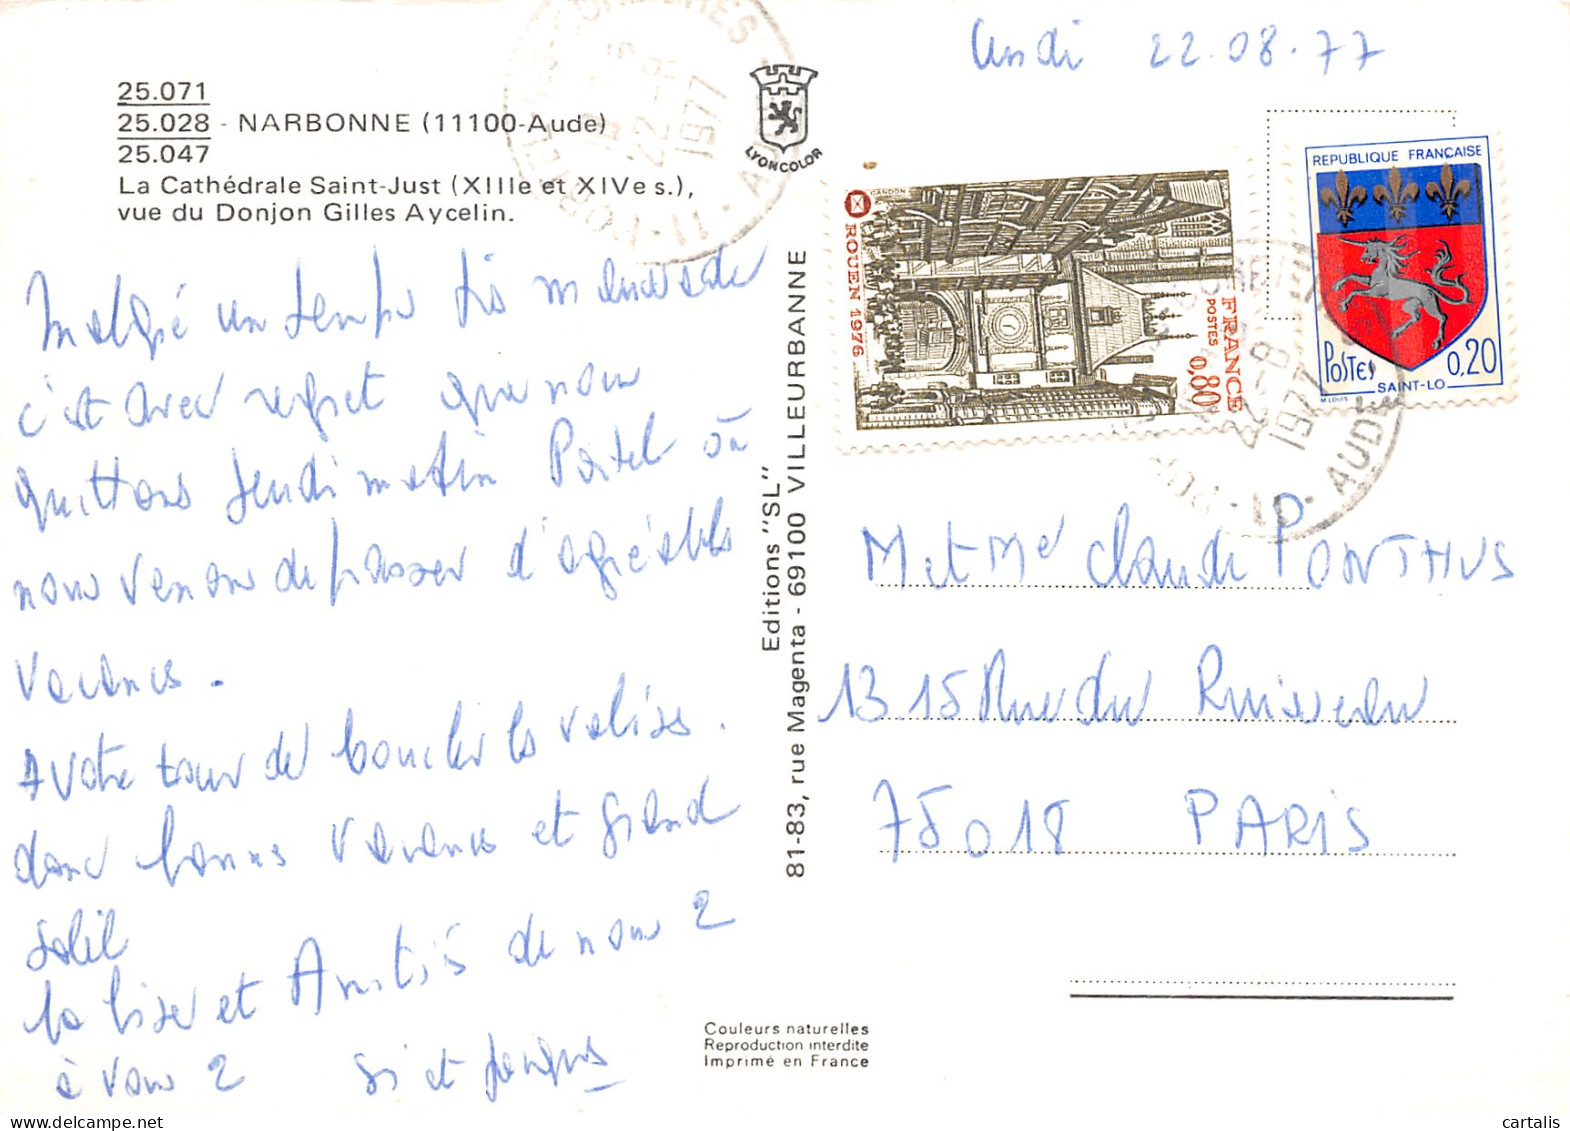 lundi 22.08.77
25.071
25.028 - NARBONNE (11100-Aude)
25.047
La Cathédrale Saint-Just (XIIIe et XIVe s.),
vue du Donjon Gilles Aycelin.
LYONCOLOR
Malgré un temps
c'est avec regret que nous
quittons Jeudi matin Portel où
nous venons de passer d'agréables
vacances.
A votre tour de boucler les valises.
donc bonnes vacances et grand
soleil
la bise et Amitiés de nous 2
à vous 2
Editions "SL"
81-83, rue Magenta - 69100 VILLEURBANNE
GANDON
ROUEN 1976
FRANCE
POSTES
0,80
REPUBLIQUE FRANÇAISE
POSTES 0,20
SAINT-LO
M.LOUIS
22-8
1977
11 - AUDE
22-8
1977
AUDE
M et Me Claude PONTHUS
13 15 Rue du Ruisseau
75018 PARIS
Couleurs naturelles
Reproduction interdite
Imprimé en France
cartalis